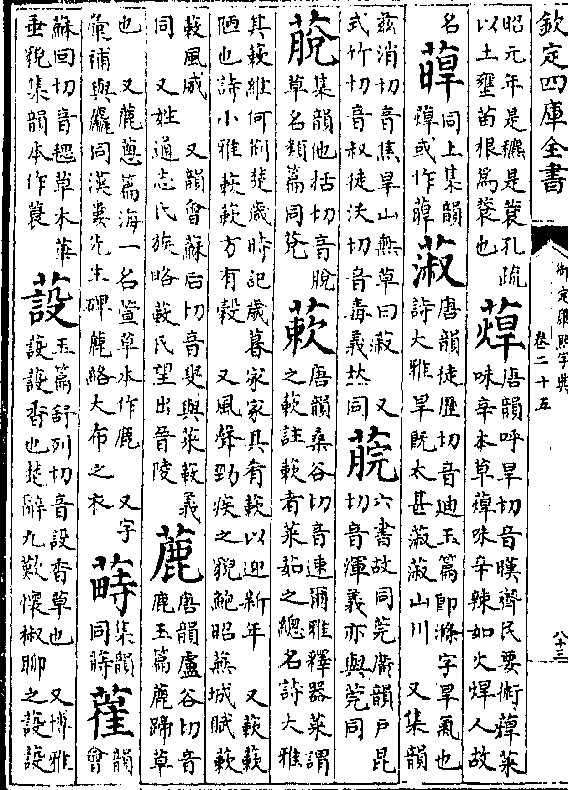 欽定四庫全書
御定康熙字典
卷二十五
八十三
昭元年是穮是蔉孔疏
以土壅苗根爲蔉也
蔊
唐韻呼旱切音暵齊民要術蔊菜
味辛本草蔊味辛辣如火焊人故
名
同上集韻
或作
蔋
唐韻徒歷切音迪玉篇卽滌字旱氣也
詩大雅旱旣太甚蔋蔋山川 又集韻
玆消切音焦旱山無草曰蔋 又
式竹切音叔徒沃切音毒義𠀤同
六書故同莞廣韻戶昆
切音渾義亦與莞同
集韻他括切音脫
草名類篇同莌
蔌
唐韻桑谷切音速爾雅釋器菜謂
之蔌註蔌者菜茹之總名詩大雅
其蔌維何荆楚歲時記歲暮家家具肴蔌以迎新年 又蔌蔌
陋也詩小雅蔌蔌方有穀 又風聲勁疾之貌鮑昭蕪城賦蔌
蔌風威 又韻會蘇后切音叟與菜蔌義
同 又姓通志氏族略蔌氏望出晉陵
蔍
唐韻盧谷切音
鹿玉篇蔍蹄草
也 又蔍蔥篇海一名萱草本作鹿 又字
彙補與麤同漢婁先生碑蔍絡大布之衣
集韻
同蒔
韻
會
蘇回切音毸草木葉
垂貌集韻本作蓑
蔎
玉篇舒列切音設香草也 又博雅
蔎蔎香也楚辭九歎懷椒聊之蔎蔎